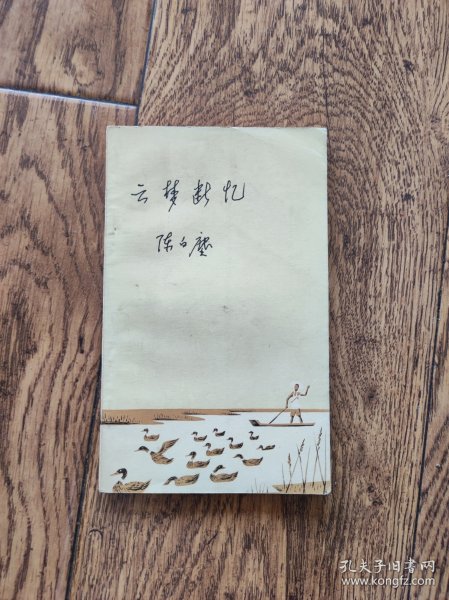 云梦断忆
陈白尘
孔夫子旧书网
www.kongfz.com